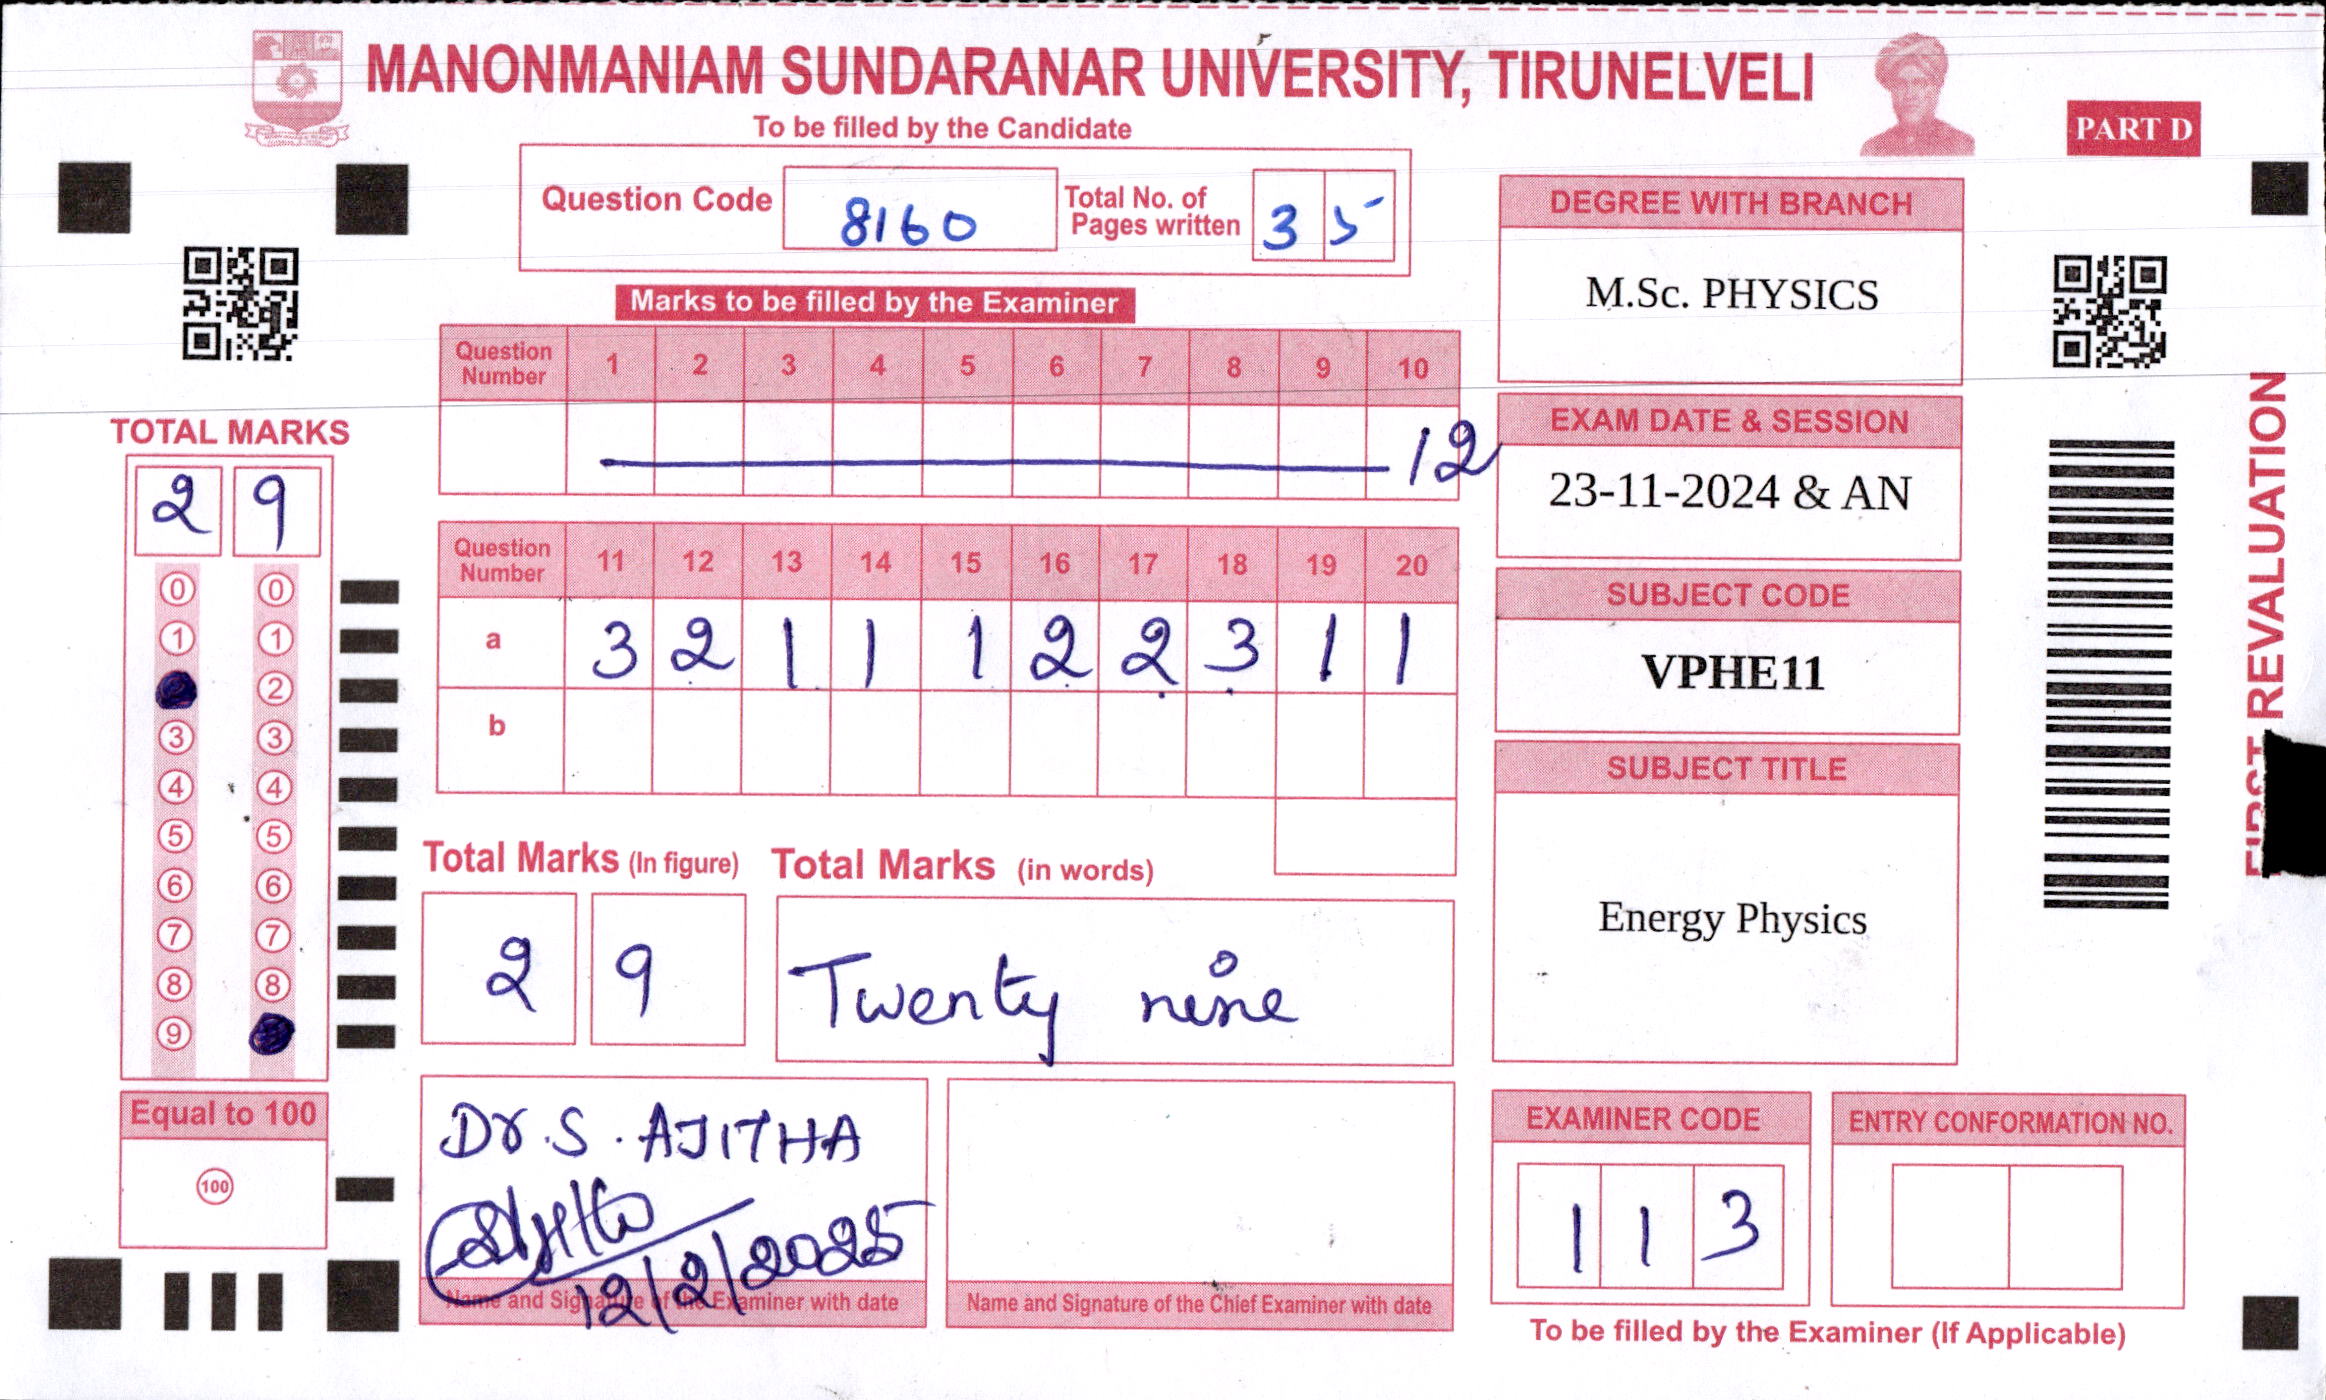 MANONMANIAM SUNDARANAR UNIVERSITY, TIRUNELVELI
PART D
To be filled by the Candidate
Question Code 8160 Total No. of Pages written 3 5
Marks to be filled by the Examiner
Question Number 1 2 3 4 5 6 7 8 9 10
12
Question Number 11 12 13 14 15 16 17 18 19 20
a 3 2 1 1 1 2 2 3 1 1
b
Total Marks (In figure) Total Marks (in words)
2 9 Twenty nine
TOTAL MARKS
2 9
0 0
1 1
2
3 3
4 4
5 5
6 6
7 7
8 8
9
Equal to 100
100
Dr. S. AJITHA
12/2/2025
Name and Signature of the Examiner with date
Name and Signature of the Chief Examiner with date
DEGREE WITH BRANCH
M.Sc. PHYSICS
EXAM DATE & SESSION
23-11-2024 & AN
SUBJECT CODE
VPHE11
SUBJECT TITLE
Energy Physics
EXAMINER CODE
1 1 3
ENTRY CONFORMATION NO.
To be filled by the Examiner (If Applicable)
FIRST REVALUATION